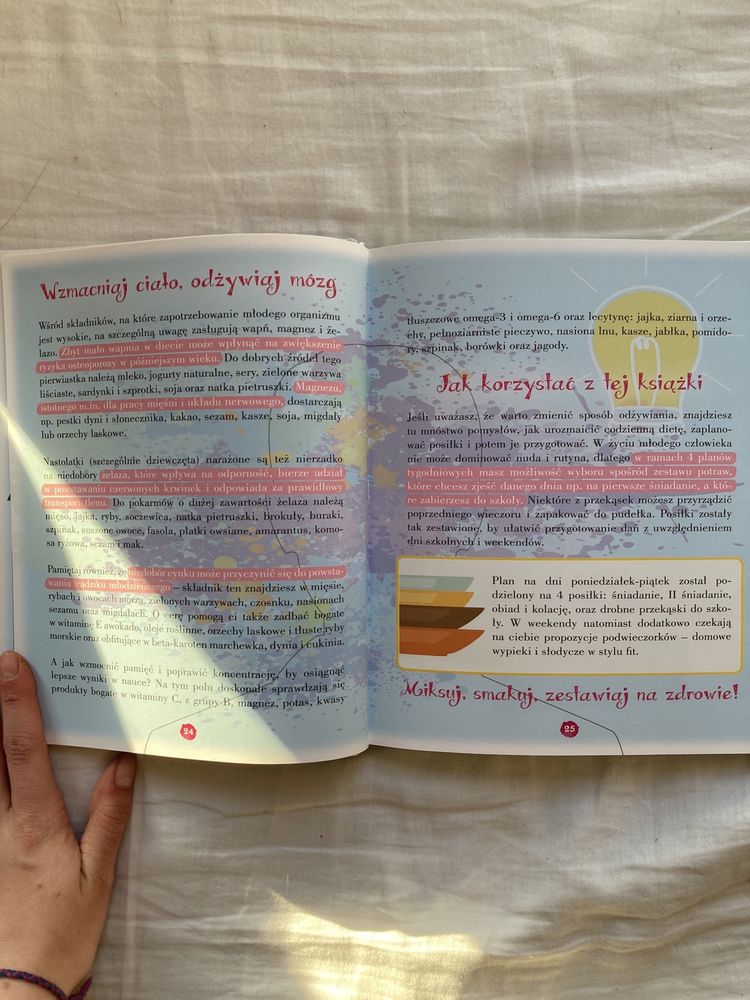 Wzmacniaj ciało, odżywiaj mózg
Wśród składników, na które zapotrzebowanie młodego organizmu
jest wysokie, na szczególną uwagę zasługują wapń, magnez i że-
lazo. Zbyt mało wapnia w diecie może wpłynąć na zwiększenie
ryzyka osteoporozy w późniejszym wieku. Do dobrych źródeł tego
pierwiastka należą mleko, jogurty naturalne, sery, zielone warzywa
liściaste, sardynki i szprotki, soja oraz natka pietruszki. Magnezu,
istotnego m.in. dla pracy mięśni i układu nerwowego, dostarczają
np. pestki dyni i słonecznika, kakao, sezam, kasze, soja, migdały
lub orzechy laskowe.
Nastolatki (szczególnie dziewczęta) narażone są też nierzadko
na niedobory żelaza, które wpływa na odporność, bierze udział
w powstawaniu czerwonych krwinek i odpowiada za prawidłowy
transport tlenu. Do pokarmów o dużej zawartości żelaza należą
mięso, jajka, ryby, soczewica, natka pietruszki, brokuły, buraki,
szpinak, suszone owoce, fasola, płatki owsiane, amarantus, komo-
sa ryżowa, sezam i mak.
Pamiętaj również, że niedobór cynku może przyczynić się do powsta-
wania trądziku młodzieńczego – składnik ten znajdziesz w mięsie,
rybach i owocach morza, zielonych warzywach, czosnku, nasionach
sezamu oraz migdałach. O cerę pomogą ci także zadbać bogate
w witaminę E awokado, oleje roślinne, orzechy laskowe i tłuste ryby
morskie oraz obfitujące w beta-karoten marchewka, dynia i cukinia.
A jak wzmocnić pamięć i poprawić koncentrację, by osiągnąć
lepsze wyniki w nauce? Na tym polu doskonale sprawdzają się
produkty bogate w witaminy C, z grupy B, magnez, potas, kwasy
24
tłuszczowe omega-3 i omega-6 oraz lecytynę: jajka, ziarna i orze-
chy, pełnoziarniste pieczywo, nasiona lnu, kasze, jabłka, pomido-
ry, szpinak, borówki oraz jagody.
Jak korzystać z tej książki
Jeśli uważasz, że warto zmienić sposób odżywiania, znajdziesz
tu mnóstwo pomysłów, jak urozmaicić codzienną dietę, zaplano-
wać posiłki i potem je przygotować. W życiu młodego człowieka
nie może dominować nuda i rutyna, dlatego w ramach 4 planów
tygodniowych masz możliwość wyboru spośród zestawu potraw,
które chcesz zjeść danego dnia np. na pierwsze śniadanie, a któ-
re zabierzesz do szkoły. Niektóre z przekąsek możesz przyrządzić
poprzedniego wieczoru i zapakować do pudełka. Posiłki zostały
tak zestawione, by ułatwić przygotowanie dań z uwzględnieniem
dni szkolnych i weekendów.
Plan na dni poniedziałek-piątek został po-
dzielony na 4 posiłki: śniadanie, II śniadanie,
obiad i kolację, oraz drobne przekąski do szko-
ły. W weekendy natomiast dodatkowo czekają
na ciebie propozycje podwieczorków – domowe
wypieki i słodycze w stylu fit.
Miksuj, smakuj, zestawiaj na zdrowie!
25